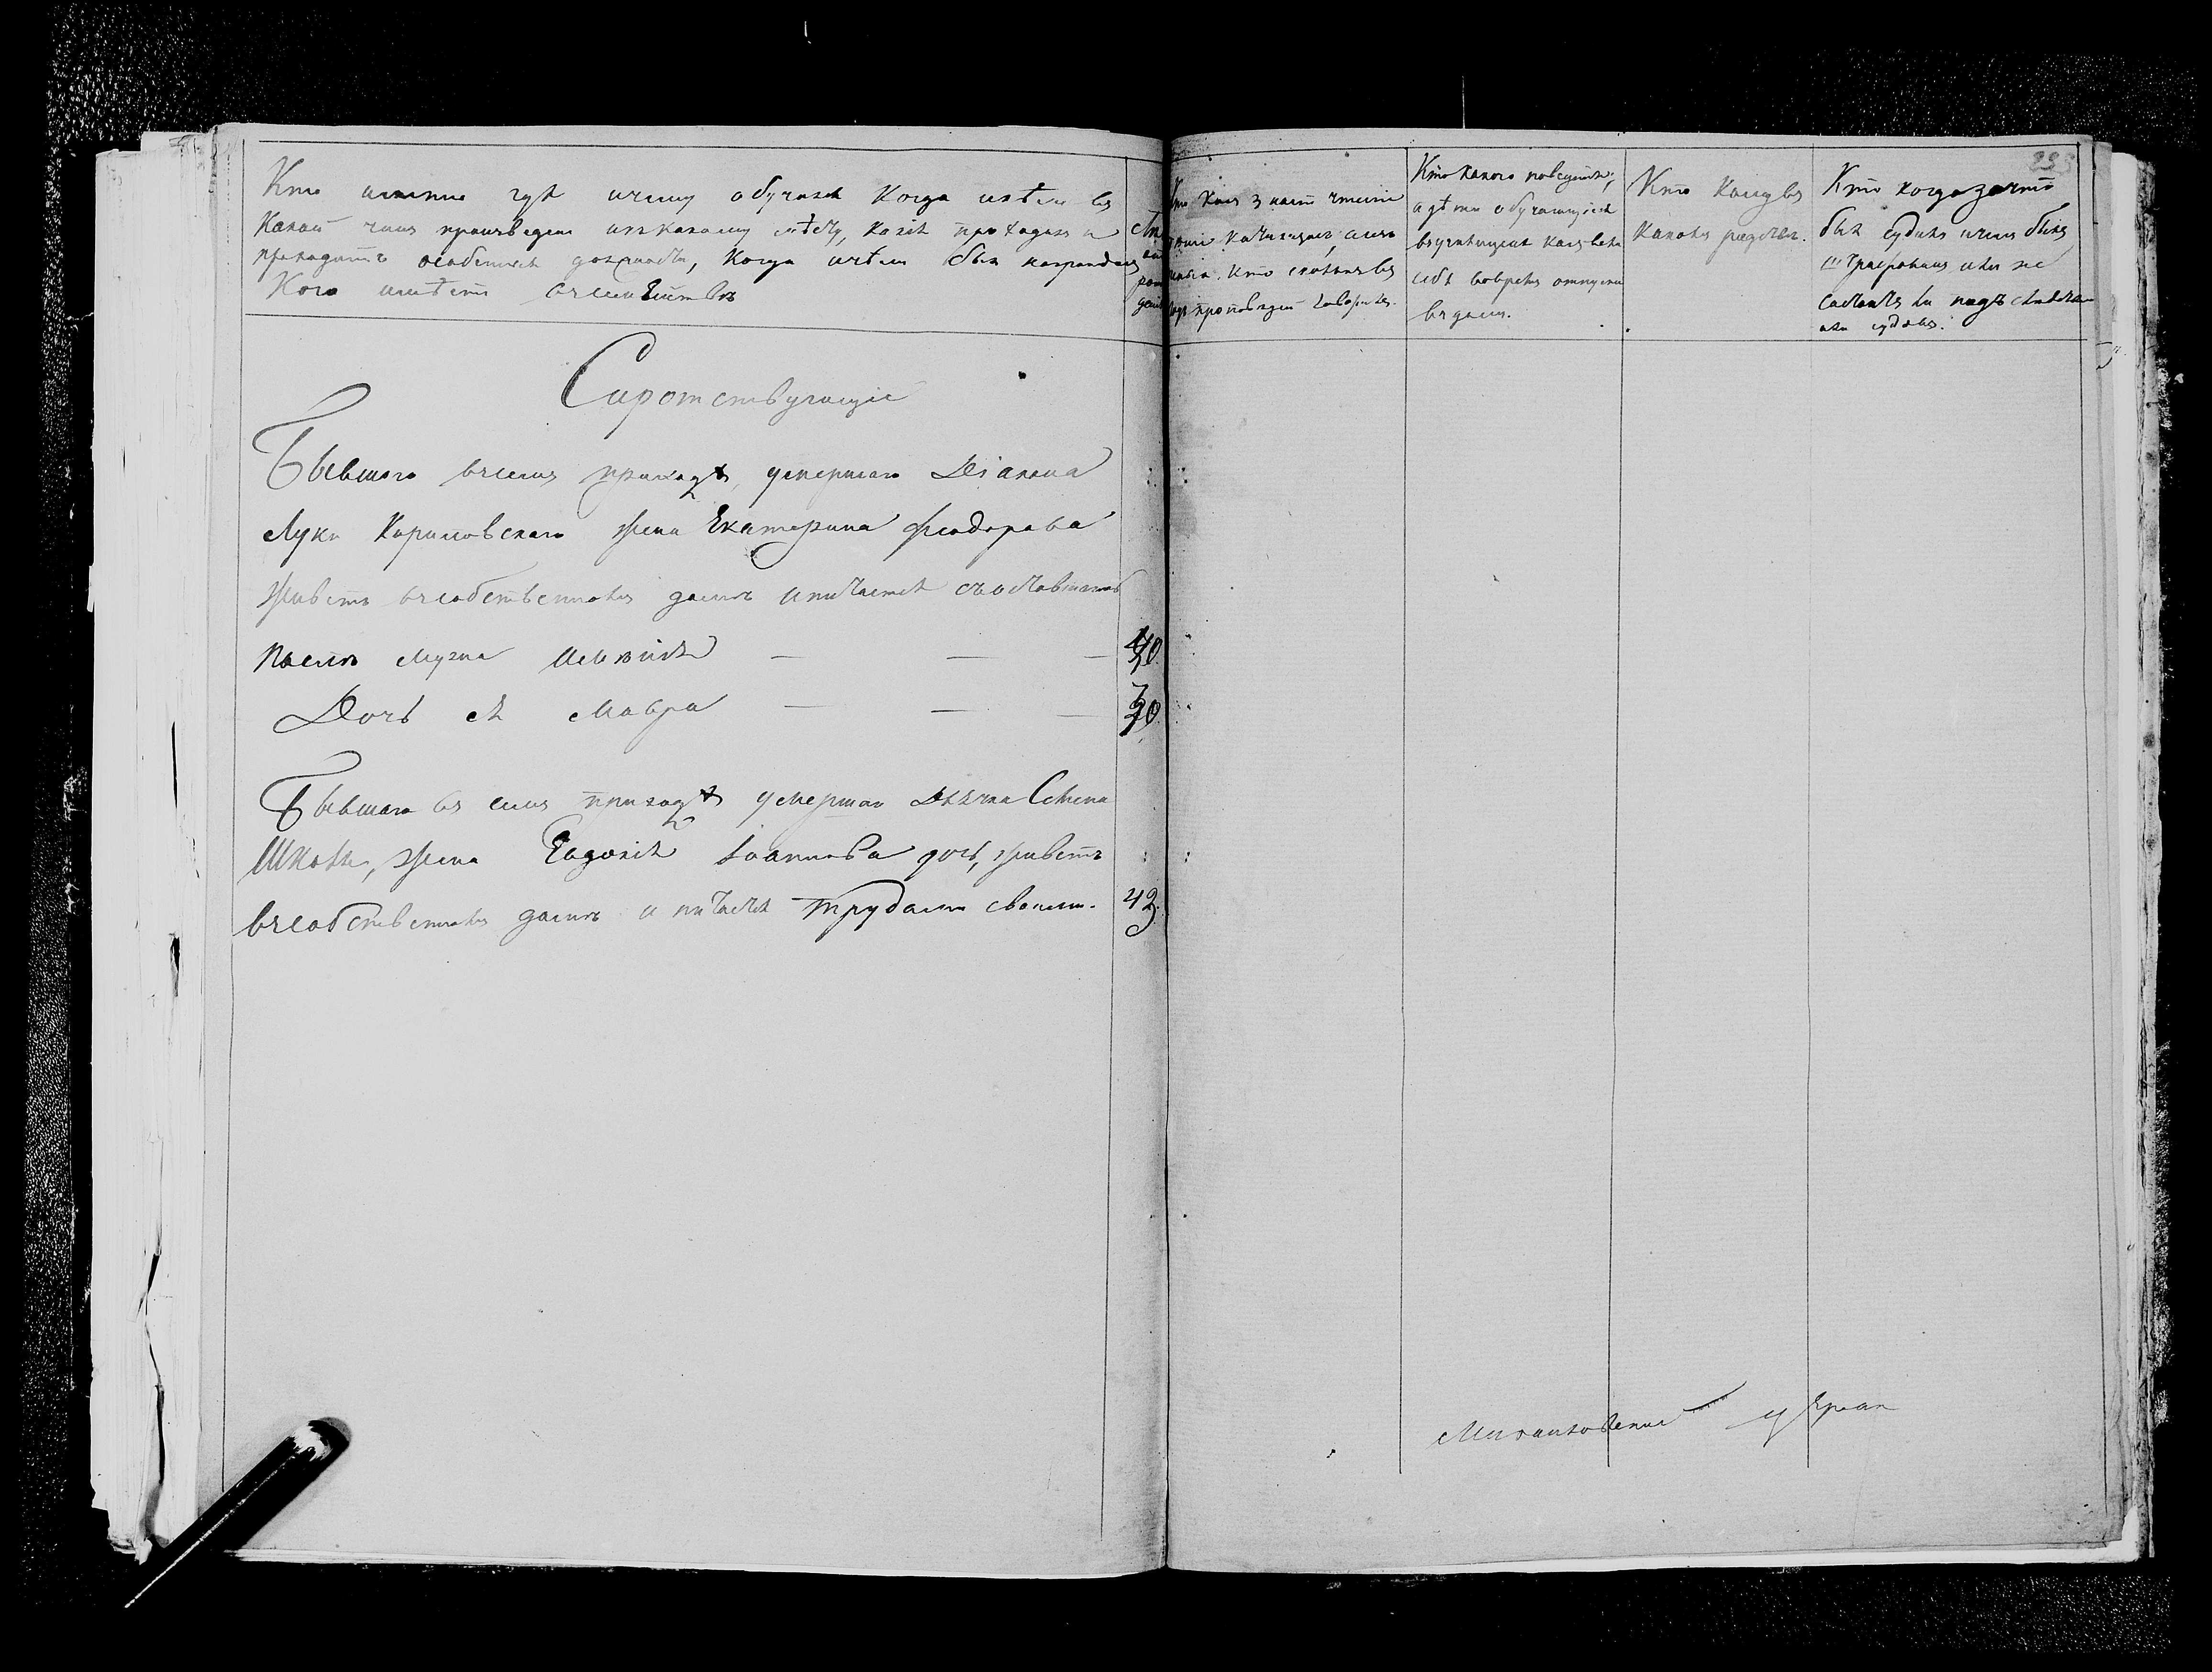 Кто именно гдѣ и чему обучался когда и кѣмъ въ
какой чинъ произведенъ и къ какому мѣсту, какія проходилъ и
проходитъ особенныя должности, когда и чѣмъ былъ награжденъ
Кого имѣетъ въ семействѣ
Кто какъ знаетъ чтеніе
Кто какого поведенія,
а дѣти обучающіяся
въ училищахъ какъ вели
себя во время отпуска
въ домъ.
Кто кому въ
какомъ родствѣ.
Кто когда за что
былъ судимъ и чѣмъ былъ
штрафованъ или не
состоитъ ли подъ слѣдств.
или судомъ.
233
Сиротствующіе
Бывшаго въ семъ приходѣ, умершаго Діакона
Луки Кориновскаго жена Екатерина Феодорова
живетъ въ собственномъ домѣ и питается
мужа имѣнія — — — 40
Дочь ея Мавра — — — 30
Бывшаго въ семъ приходѣ умершаго Дьячка Семена
жена Евдокія Іоаннова дочь, живетъ
въ собственномъ домѣ и питается трудами своими. 42.